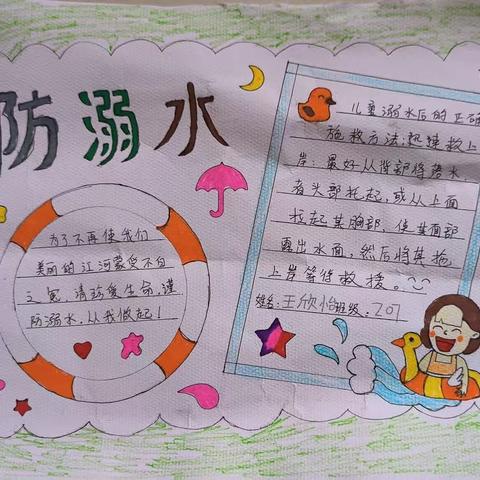 防溺水
为了不再使我们
美丽的江河蒙受不白
之冤,请珍爱生命,谨
防溺水,从我做起!
儿童溺水后的正确
施救方法:迅速救上
岸:最好从背部将落水
者头部托起,或从上面
拉起其胸部,使其面部
露出水面,然后将其抱
上岸等待救援。
姓名:王欣怡班级:207